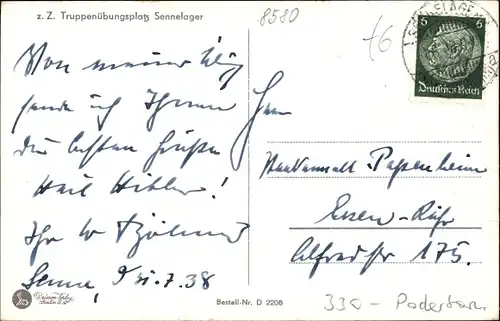 z. Z. Truppenübungsplatz Sennelager
8580
f6
SENNELAGER
6
Deutsches Reich
Von meiner
sende ich Ihnen
die besten Grüße
Heil Hitler!
Ihr
Senne, 7.38
Herrn
Rechtsanwalt Papenheim
Essen-Ruhr
Alfredstr 175.
Bestell-Nr. D 2208
330 - Paderborn